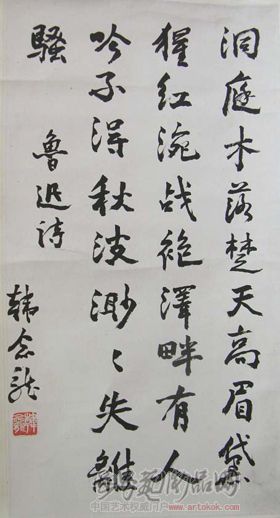 洞庭木落楚天高眉黛
猩红涴战袍泽畔有人
吟不得秋波渺〻失離
騷
鲁迅诗
韩念龙
中国艺术权威门户 www.artokok.com